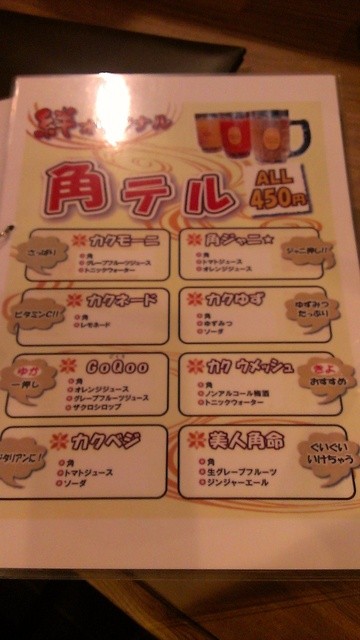 絆オリジナル
角テル
ALL
450円
カクモーニ
さっぱり
角
グレープフルーツジュース
トニックウォーター
角ジャニ★
ジャニ押し!!
角
トマトジュース
オレンジジュース
カクネード
ビタミンC!!
角
レモネード
カクゆず
ゆずみつ
たっぷり
角
ゆずみつ
ソーダ
GoQoo
ゆか
一押し
角
オレンジジュース
グレープフルーツジュース
ザクロシロップ
カク ウメッシュ
きよ
おすすめ
角
ノンアルコール梅酒
トニックウォーター
カクベジ
タリアンに!
角
トマトジュース
ソーダ
美人角命
ぐいぐい
いけちゃう
角
生グレープフルーツ
ジンジャーエール